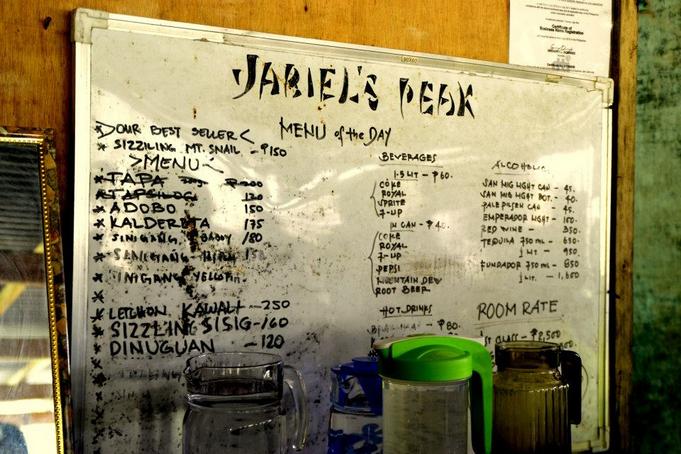 JABIEL'S PEAK
MENU of the DAY
OUR BEST SELLER
* SIZZILING MT. SNAIL - ₱150
MENU
* TAPA
* TAPSILOG 120
* ADOBO 150
* KALDERETA 175
* SINIGANG 180
* 
* SINIGANG
* 
* LETCHON KAWALI - 250
* SIZZLING SISIG - 160
* DINUGUAN - 120
BEVERAGES
1.5 LIT - ₱60.
COKE
ROYAL
SPRITE
7-UP
IN CAN - ₱40.
COKE
ROYAL
7-UP
PEPSI
MOUNTAIN DEW
ROOT BEER
HOT DRINKS
₱80.
ALCOHOLIC
SAN MIG LIGHT CAN - 45.
SAN MIG LIGHT BOT. - 40.
PALE PILSEN CAN - 45.
EMPERADOR LIGHT - 150.
RED WINE - 350.
TEQUILA 750 ML - 650.
1 LIT - 950.
FUNDADOR 750 ML - 850
1 LIT. - 1,650
ROOM RATE
1ST CLASS - ₱2,500
Certificate of
Business Name Registration